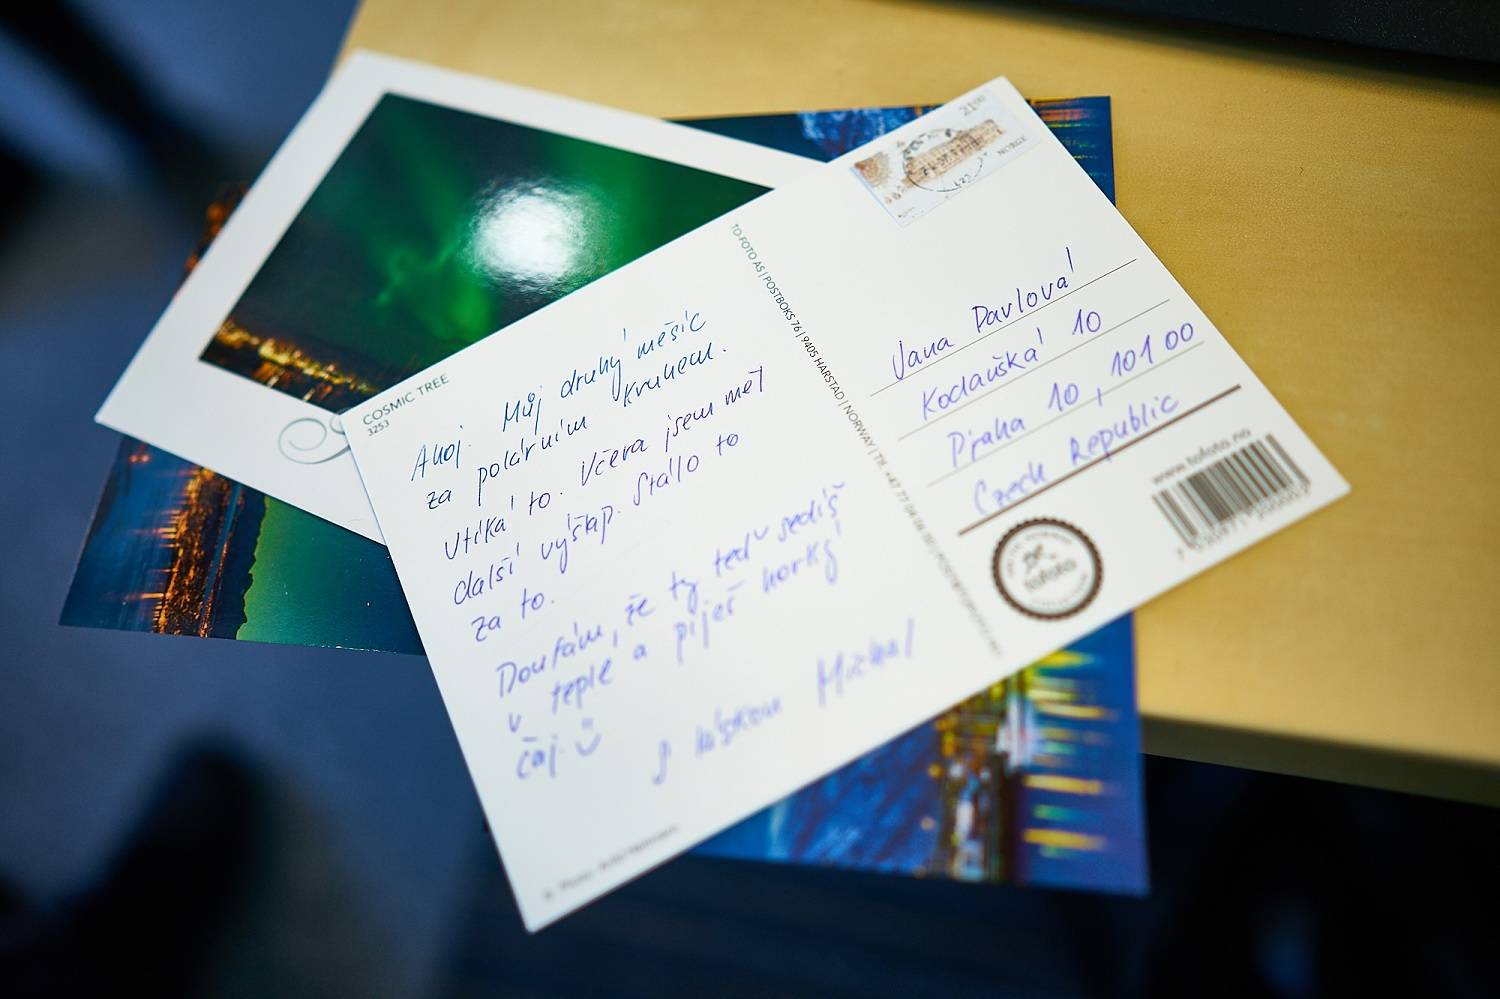 COSMIC TREE
3253
Ahoj. Můj druhý měsíc
za polárním kruhem.
Utíká to. Včera jsem měl
další výšlap. Stálo to
za to.
Doufám, že ty teď sedíš
v teple a piješ horký
čaj. ☺
S láskou Michal
TO-FOTO AS | POSTBOKS 76 | 9405 HARSTAD | NORWAY | Tlf. +47 77 04 06 00 |
21 00
NORGE
Jana Pavlová
Kodaňská 10
Praha 10, 101 00
Czech Republic
www.tofoto.no
tofoto